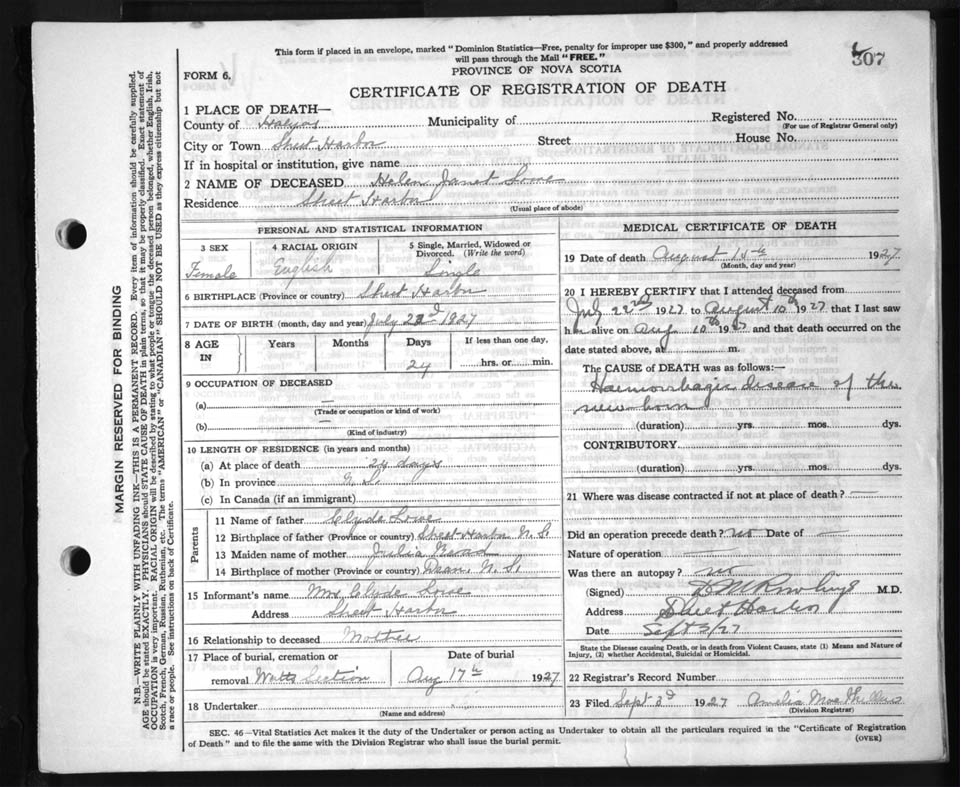 This form if placed in an envelope, marked "Dominion Statistics—Free, penalty for improper use $300," and properly addressed
will pass through the Mail "FREE."
307
FORM 6.
PROVINCE OF NOVA SCOTIA
CERTIFICATE OF REGISTRATION OF DEATH
1 PLACE OF DEATH—
County of Halifax Municipality of Registered No.
(For use of Registrar General only)
City or Town Sheet Harbor Street House No.
If in hospital or institution, give name
2 NAME OF DECEASED Helen Janet Lowe
Residence Sheet Harbor
(Usual place of abode)
PERSONAL AND STATISTICAL INFORMATION
3 SEX
Female
4 RACIAL ORIGIN
English
5 Single, Married, Widowed or
Divorced. (Write the word)
Single
6 BIRTHPLACE (Province or country) Sheet Harbor
7 DATE OF BIRTH (month, day and year) July 22d 1927
8 AGE IN
Years Months Days If less than one day,
24 hrs. or min.
9 OCCUPATION OF DECEASED
(a) —
(Trade or occupation or kind of work)
(b) —
(Kind of industry)
10 LENGTH OF RESIDENCE (in years and months)
(a) At place of death 24 days
(b) In province
(c) In Canada (if an immigrant)
Parents
11 Name of father Clyde Lowe
12 Birthplace of father (Province or country) Sheet Harbor N.S.
13 Maiden name of mother Julia
14 Birthplace of mother (Province or country) Dean, N.S.
15 Informant's name Mrs Clyde Lowe
Address Sheet Harbor
16 Relationship to deceased Mother
17 Place of burial, cremation or removal Watts Section
Date of burial
Aug 17th 1927
18 Undertaker
(Name and address)
MEDICAL CERTIFICATE OF DEATH
19 Date of death August 1927
(Month, day and year)
20 I HEREBY CERTIFY that I attended deceased from
July 22nd 1927 to August 10th 1927 that I last saw
h alive on Aug 10th 1927 and that death occurred on the
date stated above, at m.
The CAUSE of DEATH was as follows:—
Haemorrhagic disease of the
new born
(duration) yrs. mos. dys.
CONTRIBUTORY
(duration) yrs. mos. dys.
21 Where was disease contracted if not at place of death? —
Did an operation precede death? no Date of —
Nature of operation —
Was there an autopsy? no
(Signed) M.D.
Address Sheet Harbor
Date Sept 3/27
State the Disease Causing Death, or in death from Violent Causes, state (1) Means and Nature of
Injury, (2) whether Accidental, Suicidal or Homicidal.
22 Registrar's Record Number
23 Filed Sept 3d 1927 Amelia
(Division Registrar)
SEC. 46—Vital Statistics Act makes it the duty of the Undertaker or person acting as Undertaker to obtain all the particulars required in the "Certificate of Registration
of Death" and to file the same with the Division Registrar who shall issue the burial permit.
(OVER)
MARGIN RESERVED FOR BINDING
N.B.—WRITE PLAINLY WITH UNFADING INK—THIS IS A PERMANENT RECORD. Every item of information should be carefully supplied.
AGE should be stated EXACTLY. PHYSICIANS should STATE CAUSE OF DEATH in plain terms, so that it may be properly classified. Exact statement of
OCCUPATION is very important. RACIAL ORIGIN will be described by stating to what people or tongue the deceased person belonged, whether English, Irish,
Scotch, French, German, Russian, Ruthenian, etc. The terms "AMERICAN" or "CANADIAN" SHOULD NOT BE USED as they express citizenship but not
a race or people. See instructions on back of Certificate.